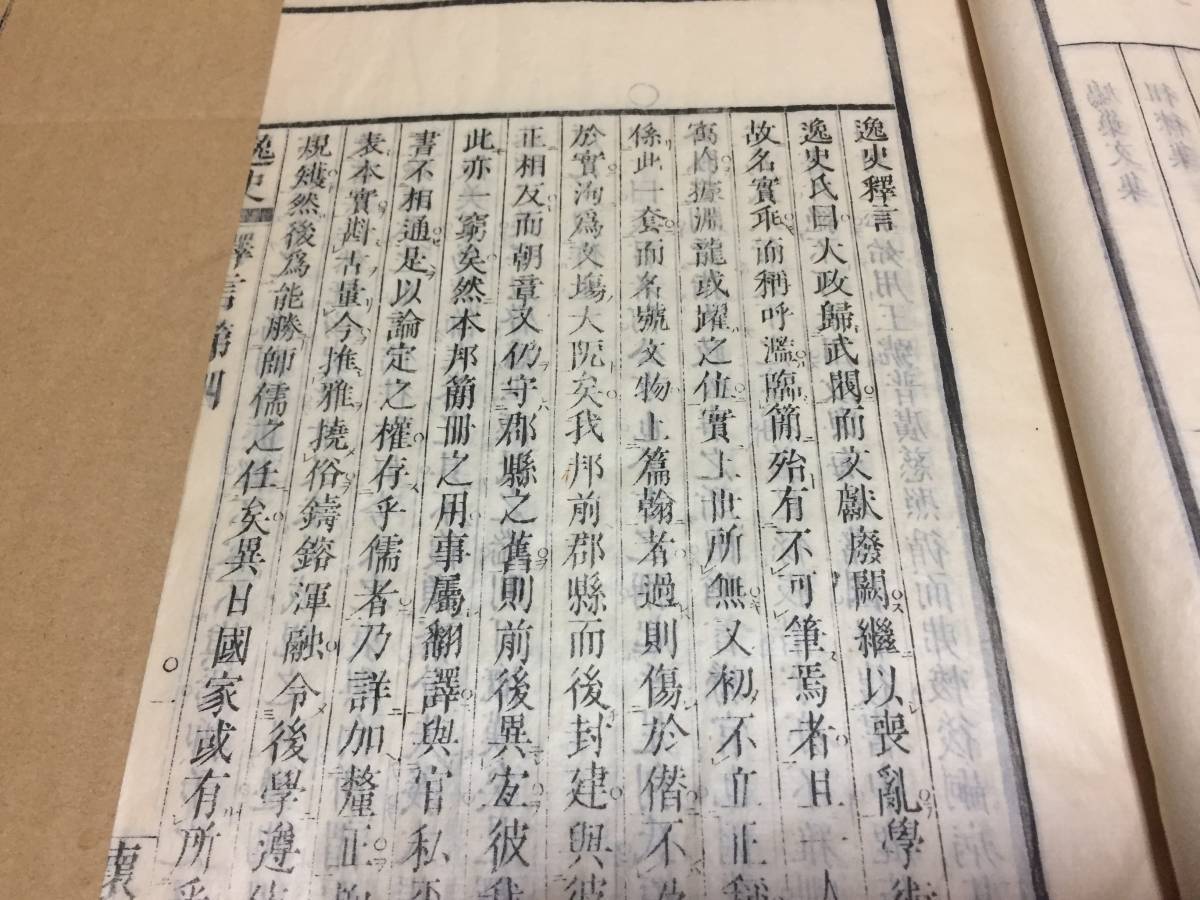 逸史釋言
逸史氏曰大政歸武閥而文獻廢闕繼以喪亂學
故名實乖而稱呼濫臨簡殆有不可筆焉者且人
據淵龍或躍之位實上世所無又初不立正稱
係此一套而名號文物上篇翰者過則傷於僭不
於實洵爲文塲大阨矣我邦前郡縣而後封建與彼
正相反而朝章又仍守郡縣之舊則前後異宜彼我
此亦一窮矣然本邦簡册之用事屬翻譯與官私
書不相通是以論定之權存乎儒者乃詳加釐正
表本實斟古量今推雅撓俗鑄鎔渾融令後學遵
規矱然後爲能勝師儒之任矣異日國家或有所
逸史 釋言第四 懷